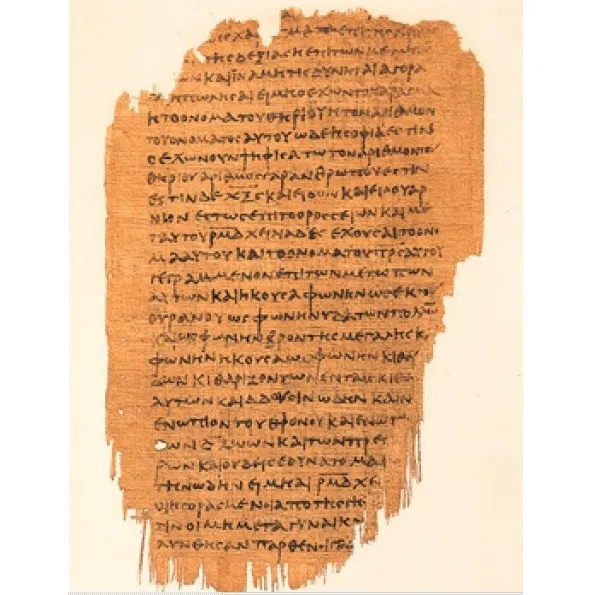 ΤΗϹΔΕΞΙΑϹΗΕΠΙΤΩΝΜΕΤΩ
ΩΝΚΑΙΪΝΑΜΗΤΙϹΔΥΝΗΤΑΙΑΓΟΡΑ
ΗΠΩΛΗϹΑΙΕΙΜΗΟΕΧΩΝΤΟΧΑΡΑΓΜΑ
ΗΤΟΟΝΟΜΑΤΟΥΘΗΡΙΟΥΗΤΟΝΑΡΙΘΜΟΝ
ΤΟΥΟΝΟΜΑΤΟϹΑΥΤΟΥΩΔΕΗϹΟΦΙΑΕϹΤΙΝ
ΟΕΧΩΝΟΥΝΨΗΦΙϹΑΤΩΤΟΝΑΡΙΘΜΟΝ
ΘΗΡΙΟΥΑΡΙΘΜΟϹΓΑΡΑΝΘΡΩΠΟΥΕϹΤΙΝ
ΕϹΤΙΝΔΕΧ̅Ξ̅Ϛ̅ΚΑΙΕΙΔΟΝΚΑΙΕΙΔΟΥΑΡ
ΝΙΟΝΕϹΤΩϹΕΠΙΤΟΟΡΟϹϹΕΙΩΝΚΑΙΜΕ
ΤΑΥΤΟΥΡ̅Μ̅Δ̅ΧΕΙΛΙΑΔΕϹΕΧΟΥϹΑΙΤΟΟΝΟ
ΜΑΑΥΤΟΥΚΑΙΤΟΟΝΟΜΑΤΟΥΠ̅Ρ̅Ϲ̅ΑΥΤΟΥ
ΓΕΓΡΑΜΜΕΝΟΝΕΠΙΤΩΝΜΕΤΩΠΩΝ
ΑΥΤΩΝΚΑΙΗΚΟΥϹΑΦΩΝΗΝΩϹΕΚΤΟΥ
ΟΥΡΑΝΟΥΩϹΦΩΝΗΝΥΔΑΤΩΝΠΟΛΛΩ̅
ΚΑΙΩϹΦΩΝΗΝΒΡΟΝΤΗϹΜΕΓΑΛΗϹΚ
ΦΩΝΗΝΗΚΟΥϹΑΩϹΦΩΝΗΝΚΙΘΑΡ
ΔΩΝΚΙΘΑΡΙΖΟΝΤΩΝΕΝΤΑΙϹΚΙΘΑ
ΑΥΤΩΝΚΑΙΑΔΟΥϹΙΝΩΔΗΝΚΑΙΝ
ΕΝΩΠΙΟΝΤΟΥΘΡΟΝΟΥΚΑΙΕΝΩΠΙ
ΤΩΝΔ̅ΖΩΩΝΚΑΙΤΩΝΠΡΕϹ
ΡΩΝΚΑΙΟΥΔΕΙϹΕΔΥΝΑΤΟΜΑΘ
ΤΗΝΩΔΗΝΕΙΜΗΑΙΡ̅Μ̅Δ̅ΧΕΙ
ΟΙΗΓΟΡΑϹΜΕΝΟΙΑΠΟΤΗϹΓΗϹ
ΤΙΝΟΙΜΗΜΕΤΑΓΥΝΑΙΚ
ΛΥΝΘΗϹΑΝΠΑΡΘΕΝΟΙΓΑΡ